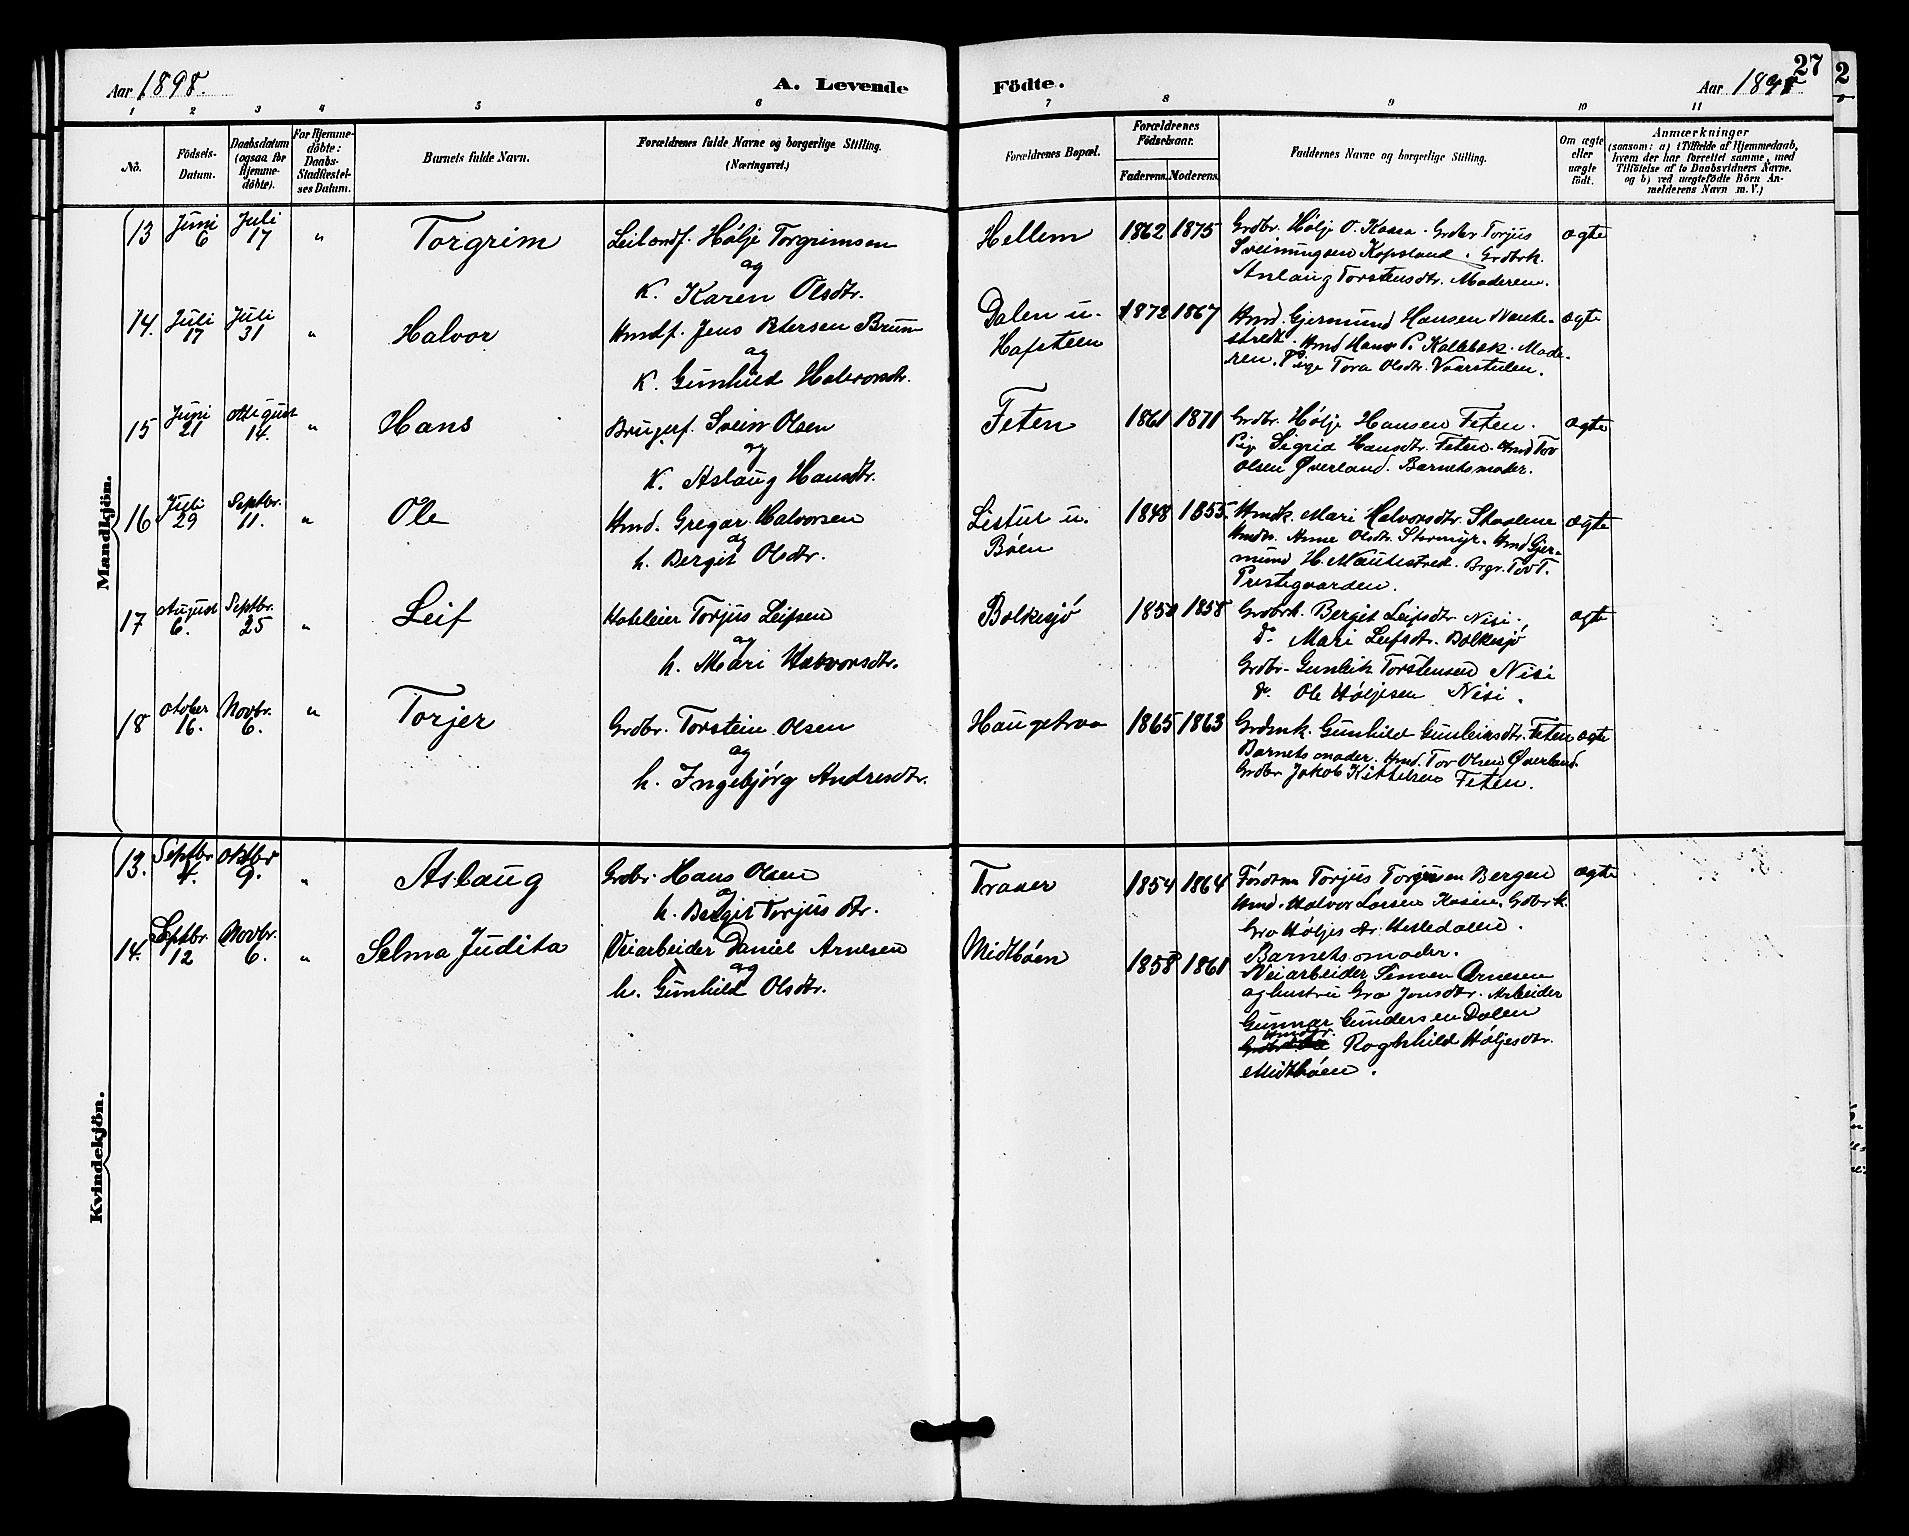 Aar 1898.
A. Levende
Födte.
Aar 1898
27
1 2 3 4 5 6 7 8 9 10 11
No.
Födsels-
Datum.
Daabsdatum
(ogsaa for
Hjemme-
döbte).
For Hjemme-
döbte:
Daabs-
Stadfæstel-
ses Datum.
Barnets fulde Navn.
Forældrenes fulde Navne og borgerlige Stilling.
(Næringsvei.)
Forældrenes Bopæl.
Forældrenes
Födselsaar.
Faderens.
Moderens.
Faddernes Navne og borgerlige Stilling.
Om ægte
eller
uægte
födt.
Anmærkninger
(saasom: a) i Tilfælde af Hjemmedaab,
hvem der har forrettet samme, med
Tilföielse af to Daabsvidners Navne.
og b) ved uægtefödte Börn An-
melderens Navn m. V.)
Mandkjön.
13 Juni 6 Juli 17 " Torgrim
Leilendf. Hølje Torgrimsen
og
K. Karen Olsdtr.
Hellem 1862 1875
Grdbr. Hølje O. Kasen. Grdbr Torjus
Sveinungsen Kopsland. Grdbrk.
Anlaug Torstensdtr. Moderen.
ægte
14. Juli 17 Juli 31 " Halvor
Hmdf. Jens Petersen Bruun
og
K. Gunhild Halvorsdtr.
Dalen u.
Hafsteen
1872 1867
Hmd. Gjermund Hansen Naute-
stredt. Hmd Hans P. Kallebæk. Mode-
ren. Pige Tora Olsdtr. Vaarstulen.
ægte
15 Juni 21 August 14. " Hans
Brugerf. Svein Olsen
og
K. Aslaug Hansdtr.
Feten 1861 1871
Grdbr. Hølje Hansen Feten.
Pig. Sigrid Hansdtr. Feten. Hmd Tov
Olsen Øverland. Barnets moder.
ægte
16 Juli 29 Septbr. 11. " Ole
Hmd. Gregar Halvorsen
og
h. Bergit Olsdtr.
Listul u.
Böen
1848 1855.
Hmdk. Mari Halvorsdtr. Skaalene
Hmdk. Anne Olsdtr. Stormyr. Hmd Gjer-
mund H. Nautestredt. Brgr. Tov T.
Prestegaarden.
ægte
17 August 6. Septbr. 25 " Leif
Torjus Leifsen
og
h. Mari Halvorsdtr.
Bolkesjö 1850 1858
Grdbrk. Bergit Leifsdtr Nisi.
do. Mari Leifsdtr. Bolkesjö
Grdbr. Gunleik Torstensen Nisi
do. Ole Höljesen Nisi.
ægte
18 Otober 16. Novbr. 6. " Torjer
Grdbr. Torstein Olsen
og
h. Ingebjörg Andresdtr.
1865 1863
Grdmk. Gunhild Gunleiksdtr. Feten
Barnets moder. Hmd. Tov Olsen Øverland.
Grdbr Jakob Kittelsen Feten.
ægte
Kvindekjön.
13. Septbr 4. Oktbr 9. " Aslaug
Grdbr. Hans Olsen
og
h. Bergit Torjusdtr.
Traaer 1854 1864
Torjus Torjusen Bergen
Hmd. Halvor Larsen Kasen. Gdbrk.
Gro Höljesdtr. Hesledalen.
Barnets moder.
ægte
14. Septbr. 12 Novbr. 6. " Selma Judita
Veiarbeider Daniel Arnesen
og
h. Gunhild Olsdtr.
Midtböen 1858 1861
Veiarbeider Simen Arnesen
og hustru Gro Jonsdtr. Arbeider
Gunnar Gundersen Dalen
Ragnhild Höljesdtr.
Midtböen.